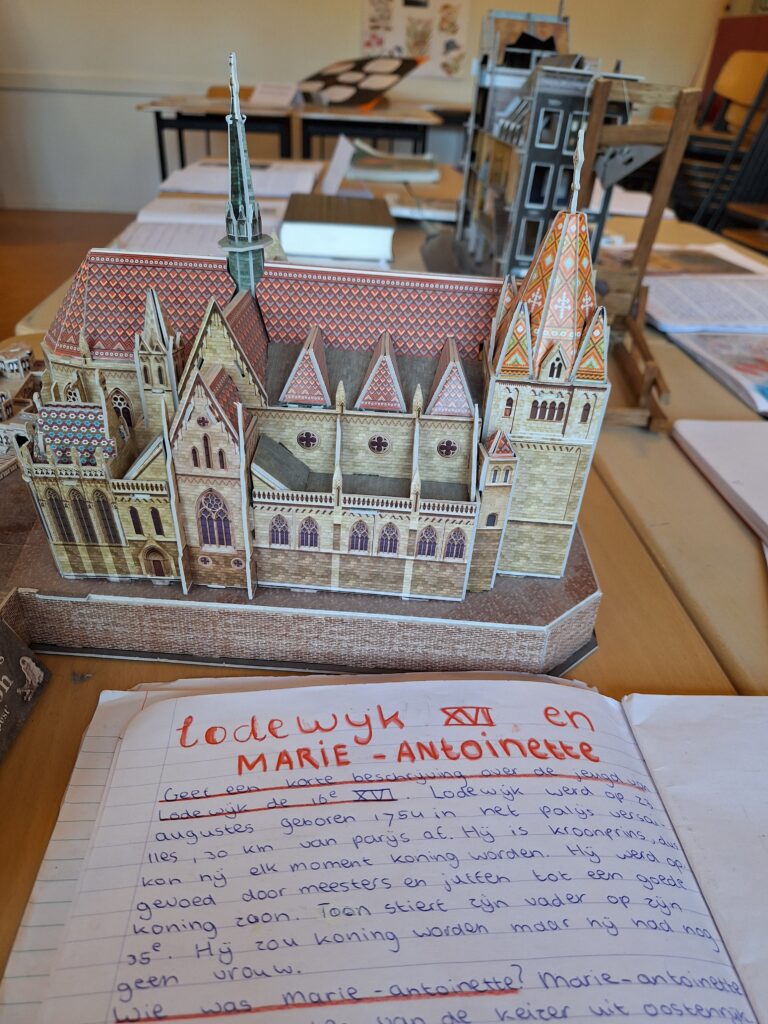 Lodewijk XVI en
MARIE-ANtoiNette
Geef een korte beschrijving over de jeugd van
Lodewijk de 16e XVI. Lodewijk werd op 23
augustes geboren 1754 in het palijs versai-
lles, 20 km van parijs af. Hij is kroonprins, dus
kon hij elk moment koning worden. Hij werd op
gevoed door meesters en juffen tot een goede
koning zoon. Toen stierf zijn vader op zijn
35e. Hij zou koning worden maar hij had nog
geen vrouw.
Wie was marie-antoinette? Marie-antoinette
van de keizer uit oostenrijk